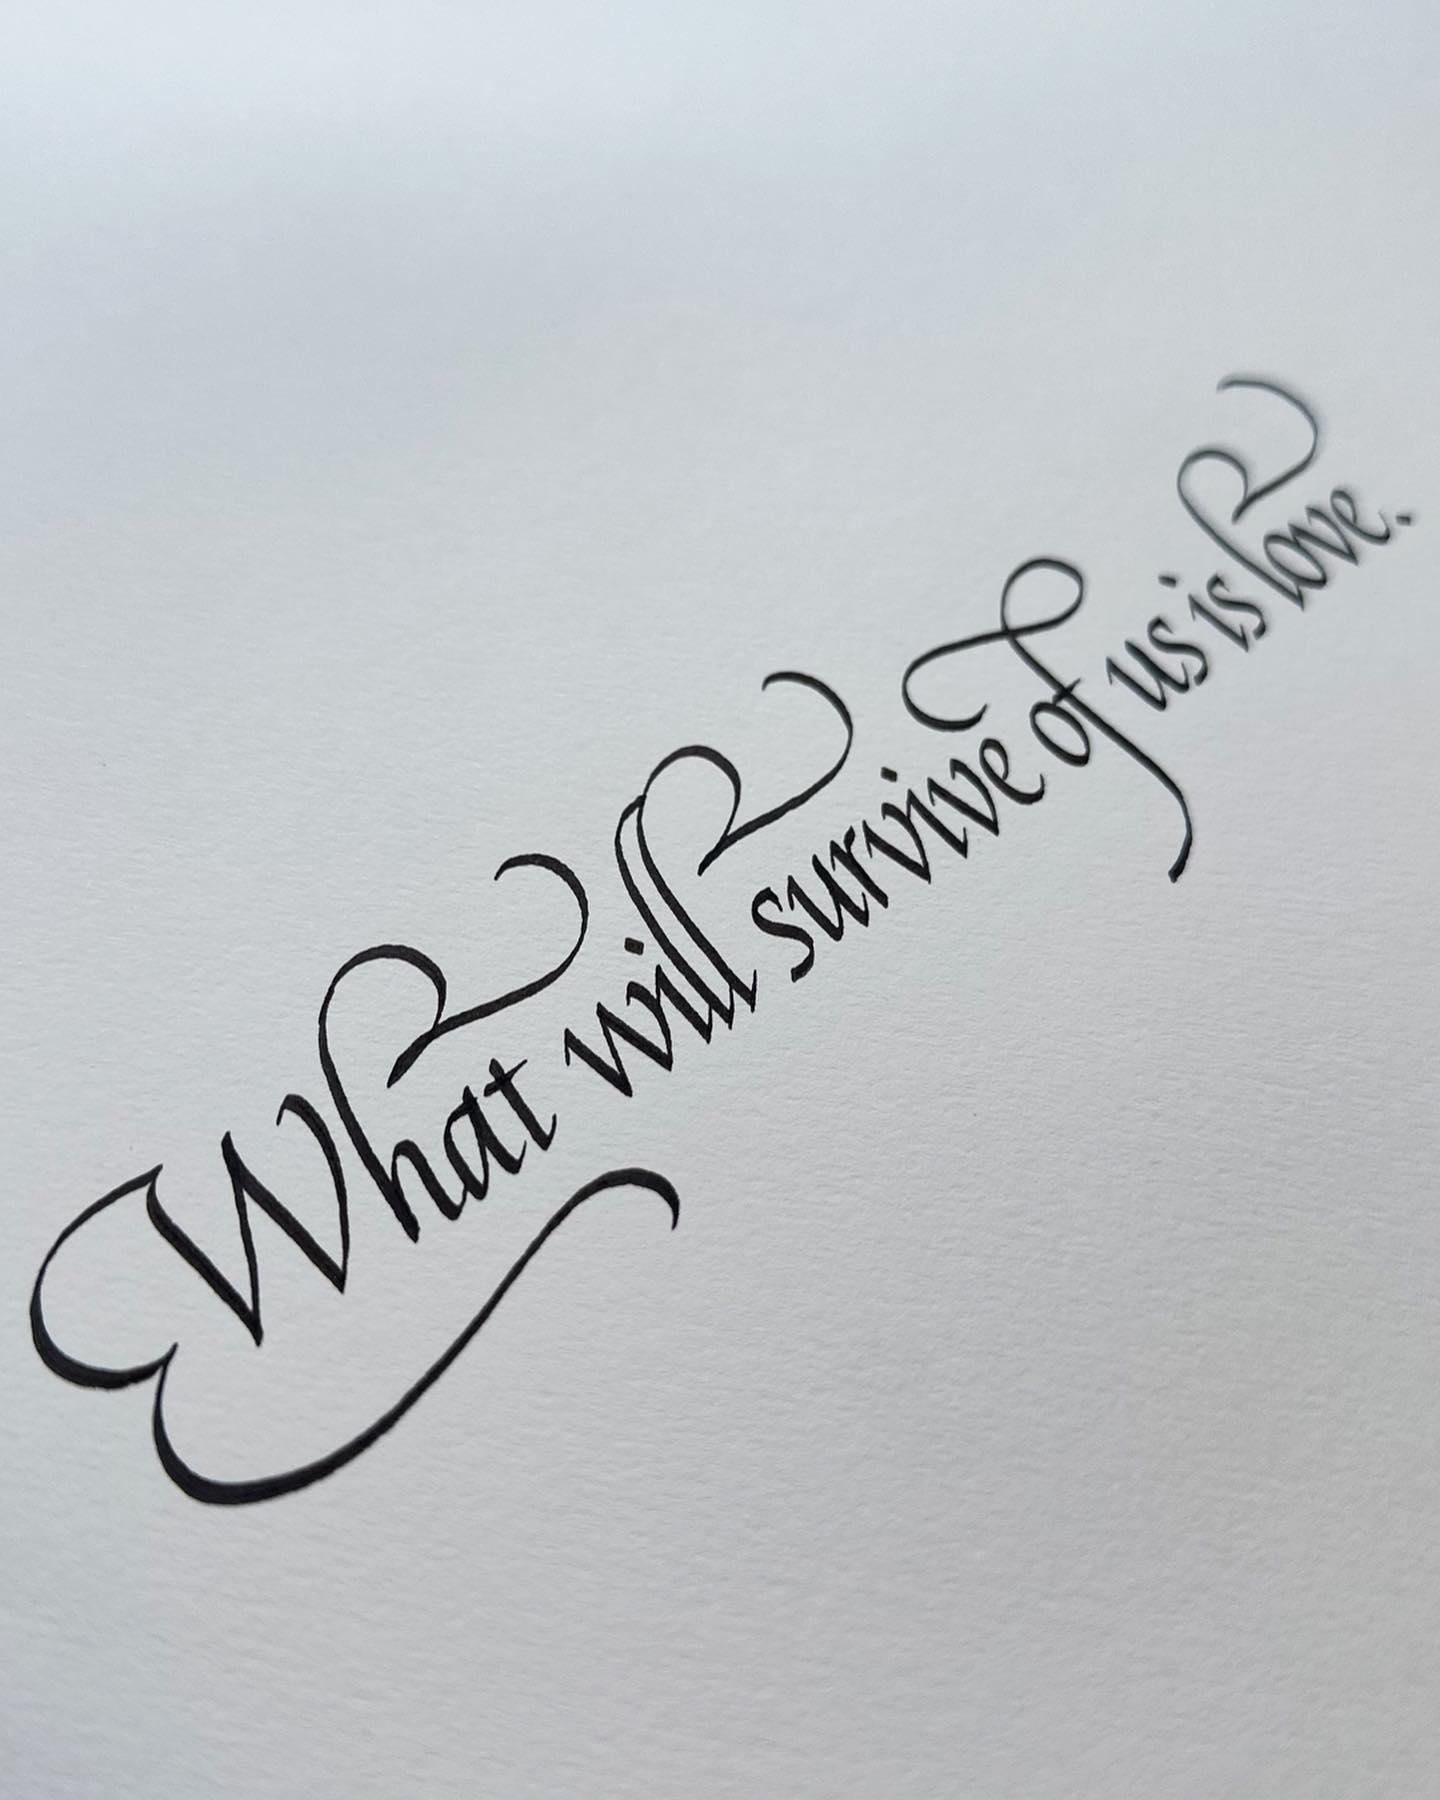 What will survive of us is love.